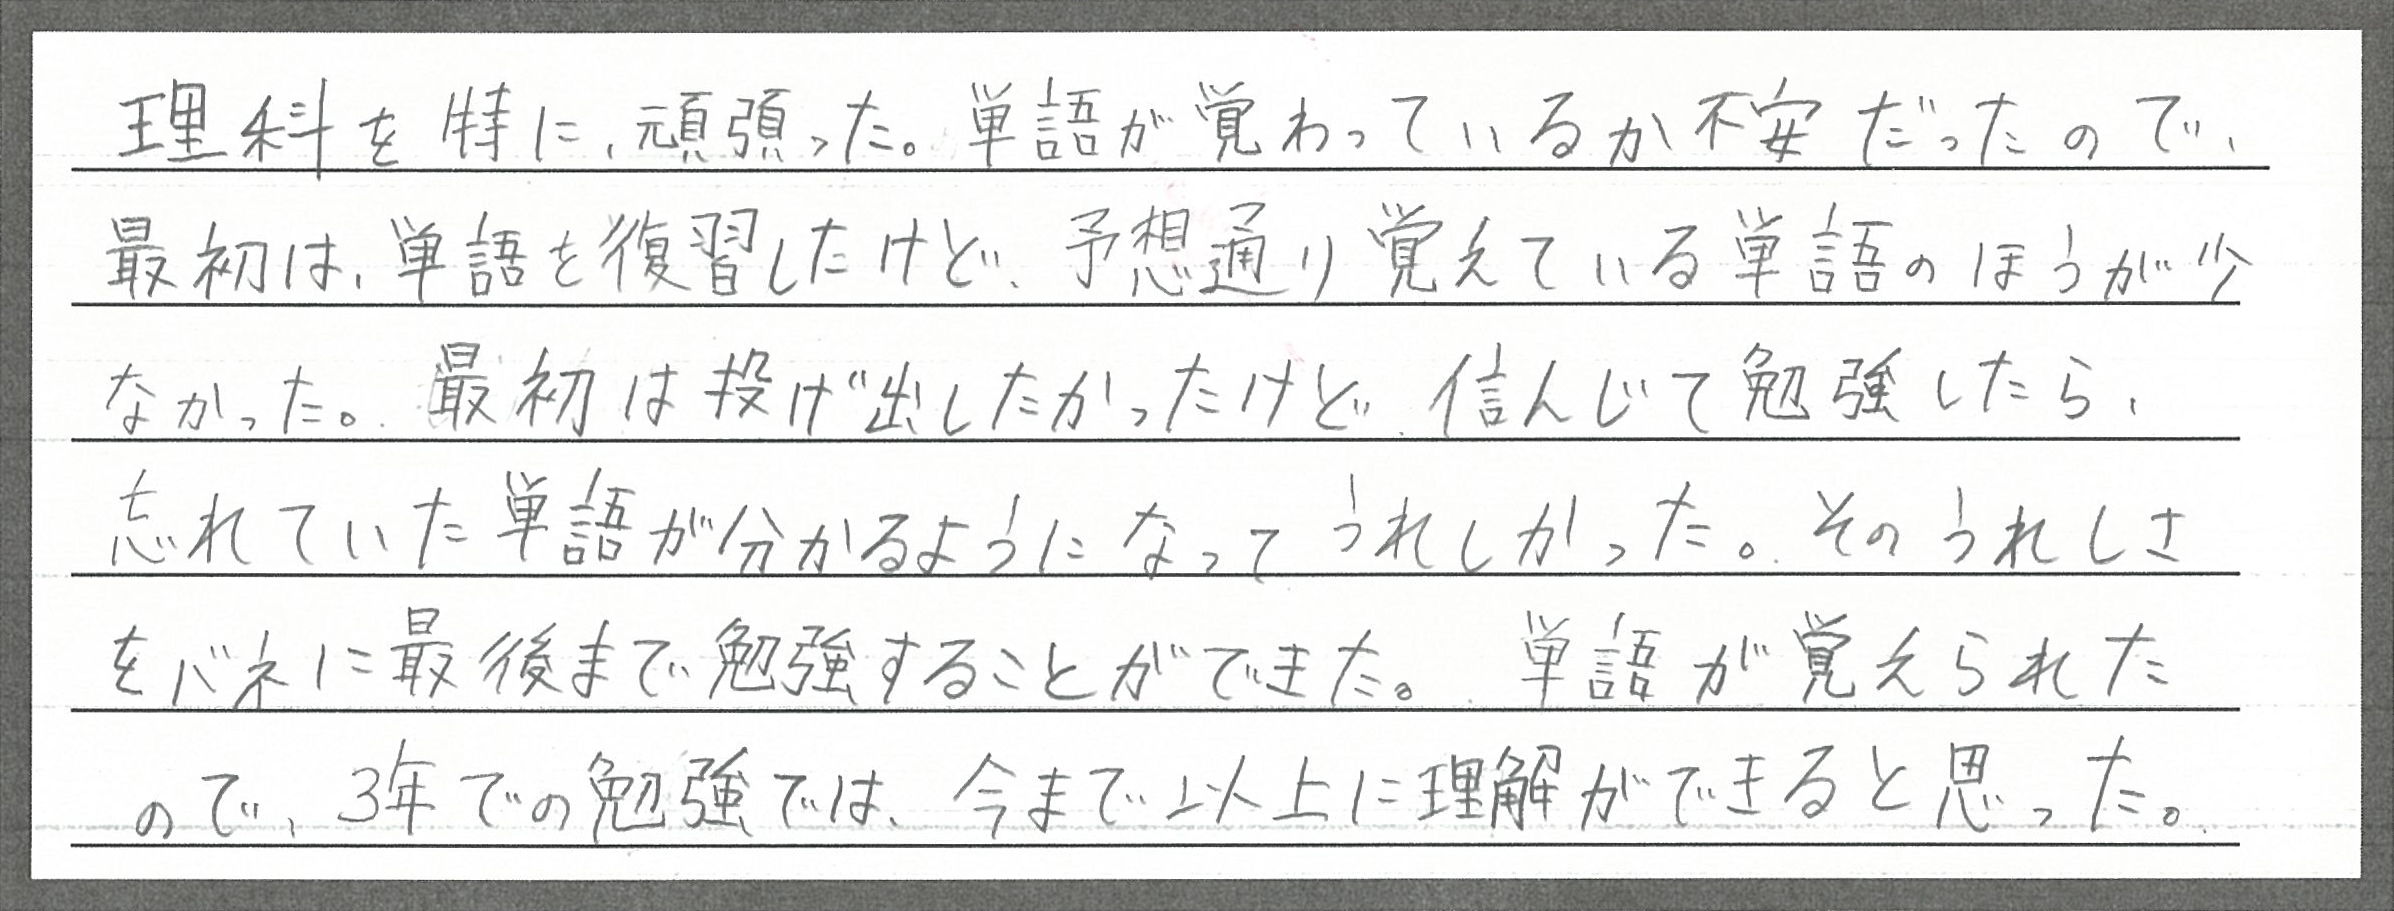 理科を特に、頑張った。単語が覚わっているか不安だったので、
最初は、単語を復習したけど、予想通り覚えている単語のほうが少
なかった。最初は投げ出したかったけど、信んじて勉強したら、
忘れていた単語が分かるようになってうれしかった。そのうれしさ
をバネに最後まで勉強することができた。単語が覚えられた
ので、3年での勉強では、今まで以上に理解ができると思った。